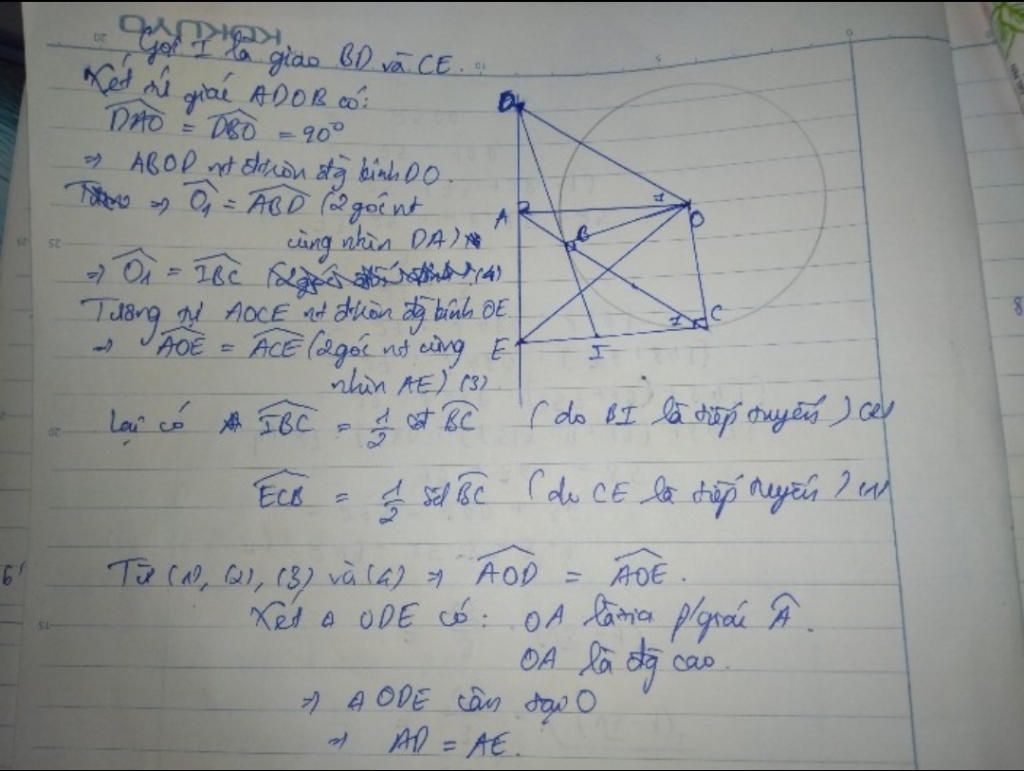 Gọi I là giao BD và CE.
Xét tứ giác ADOB có:
DAO = DBO = 90°
=> ABOD nt đtròn đg kính DO.
=> O1 = ABD (2 góc nt
cùng nhìn DA)
=> O1 = IBC (4)
Tương tự AOCE nt đtròn đg kính OE.
=> AOE = ACE (2 góc nt cùng
nhìn AE) (3)
Lại có IBC = 1/2 sđ BC (do BI là tiếp tuyến)
ECB = 1/2 sđ BC (do CE là tiếp tuyến)
Từ (1), (2), (3) và (4) => AOD = AOE.
Xét Δ ODE có: OA là tia p/giác A.
OA là đg cao.
=> Δ ODE cân tại O
=> AD = AE.
D
A
1
O
B
1
C
E
I